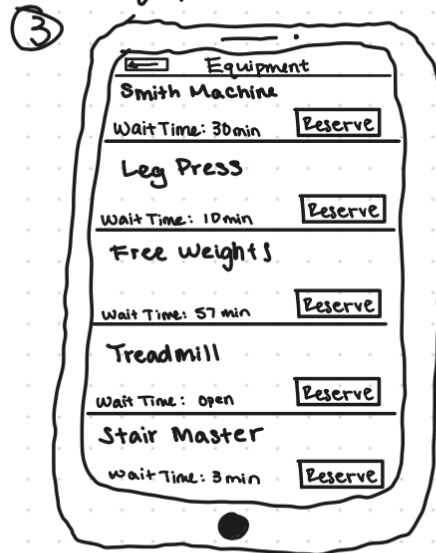 3
Equipment
Smith Machine
Wait Time: 30min Reserve
Leg Press
Wait Time: 10min Reserve
Free Weights
Wait Time: 57 min Reserve
Treadmill
Wait Time: open Reserve
Stair Master
Wait Time: 3 min Reserve